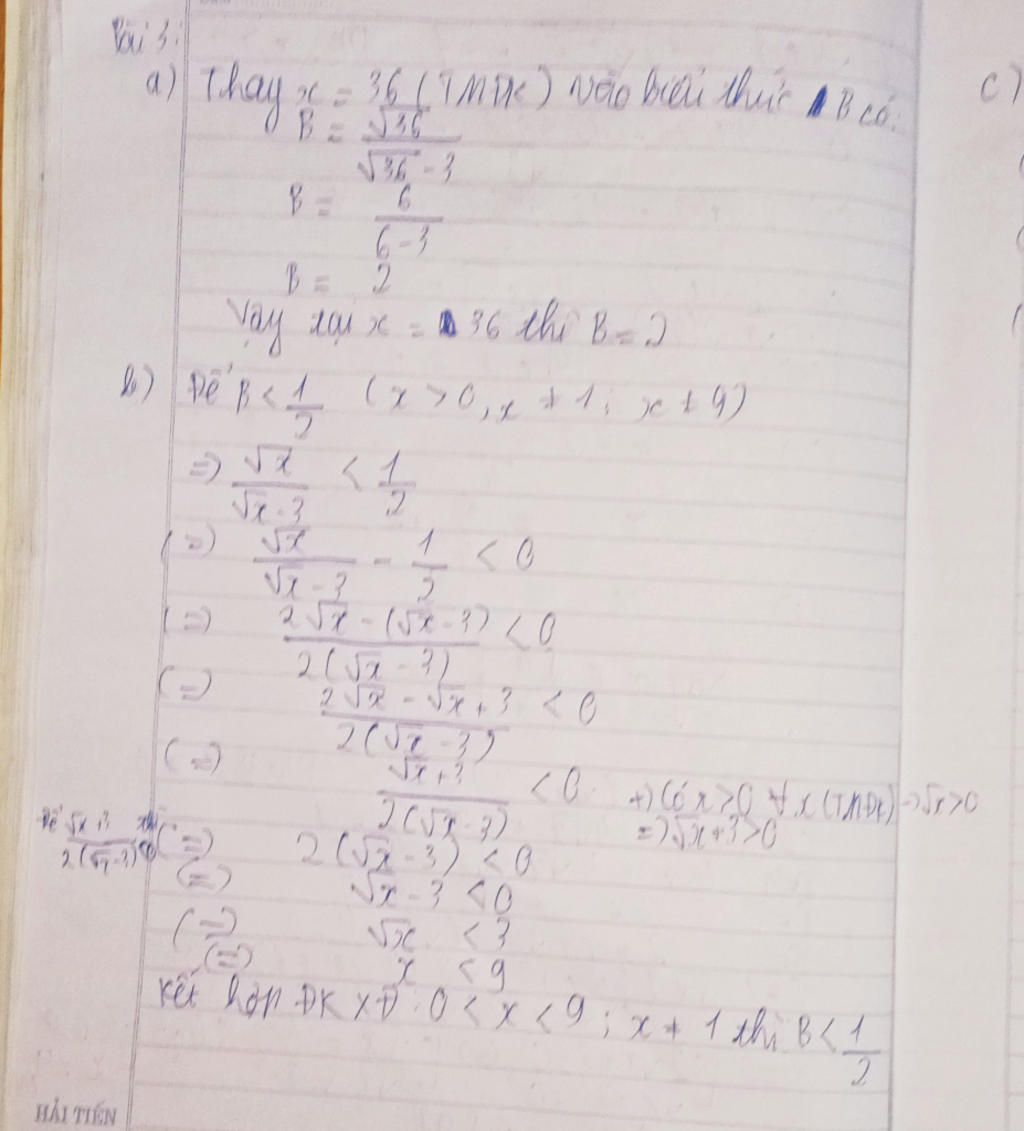 Bài 3:
a) Thay x = 36 (TMĐK) vào biểu thức B có:
B = √36 / (√36 - 3)
B = 6 / (6 - 3)
B = 2
Vậy tại x = 36 thì B = 2
b) Để B < 1/2 (x > 0, x ≠ 1; x ≠ 9)
=> √x / (√x - 3) < 1/2
(=) √x / (√x - 3) - 1/2 < 0
(=) (2√x - (√x - 3)) / (2(√x - 3)) < 0
(=) (2√x - √x + 3) / (2(√x - 3)) < 0
(=) (√x + 3) / (2(√x - 3)) < 0 +) Có x > 0 ∀ x (TMĐK) -> √x > 0
=> √x + 3 > 0
Để (√x + 3) / (2(√x - 3)) < 0 thì (=) 2(√x - 3) < 0
(=) √x - 3 < 0
(=) √x < 3
(=) x < 9
Kết hợp ĐKXĐ: 0 < x < 9; x ≠ 1 thì B < 1/2
c)
HẢI TIẾN